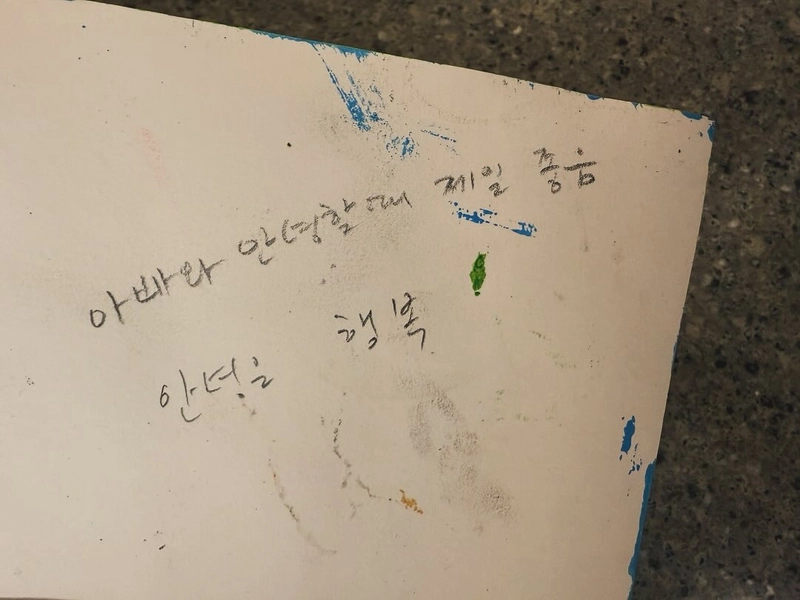 아빠와 안녕할때 제일 좋음
안녕은 행복